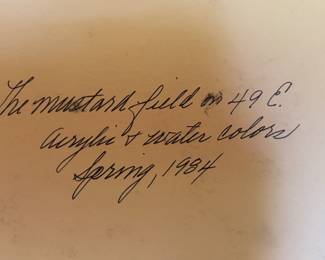 The mustard field on 49 E.
acrylic & water colors
Spring, 1984